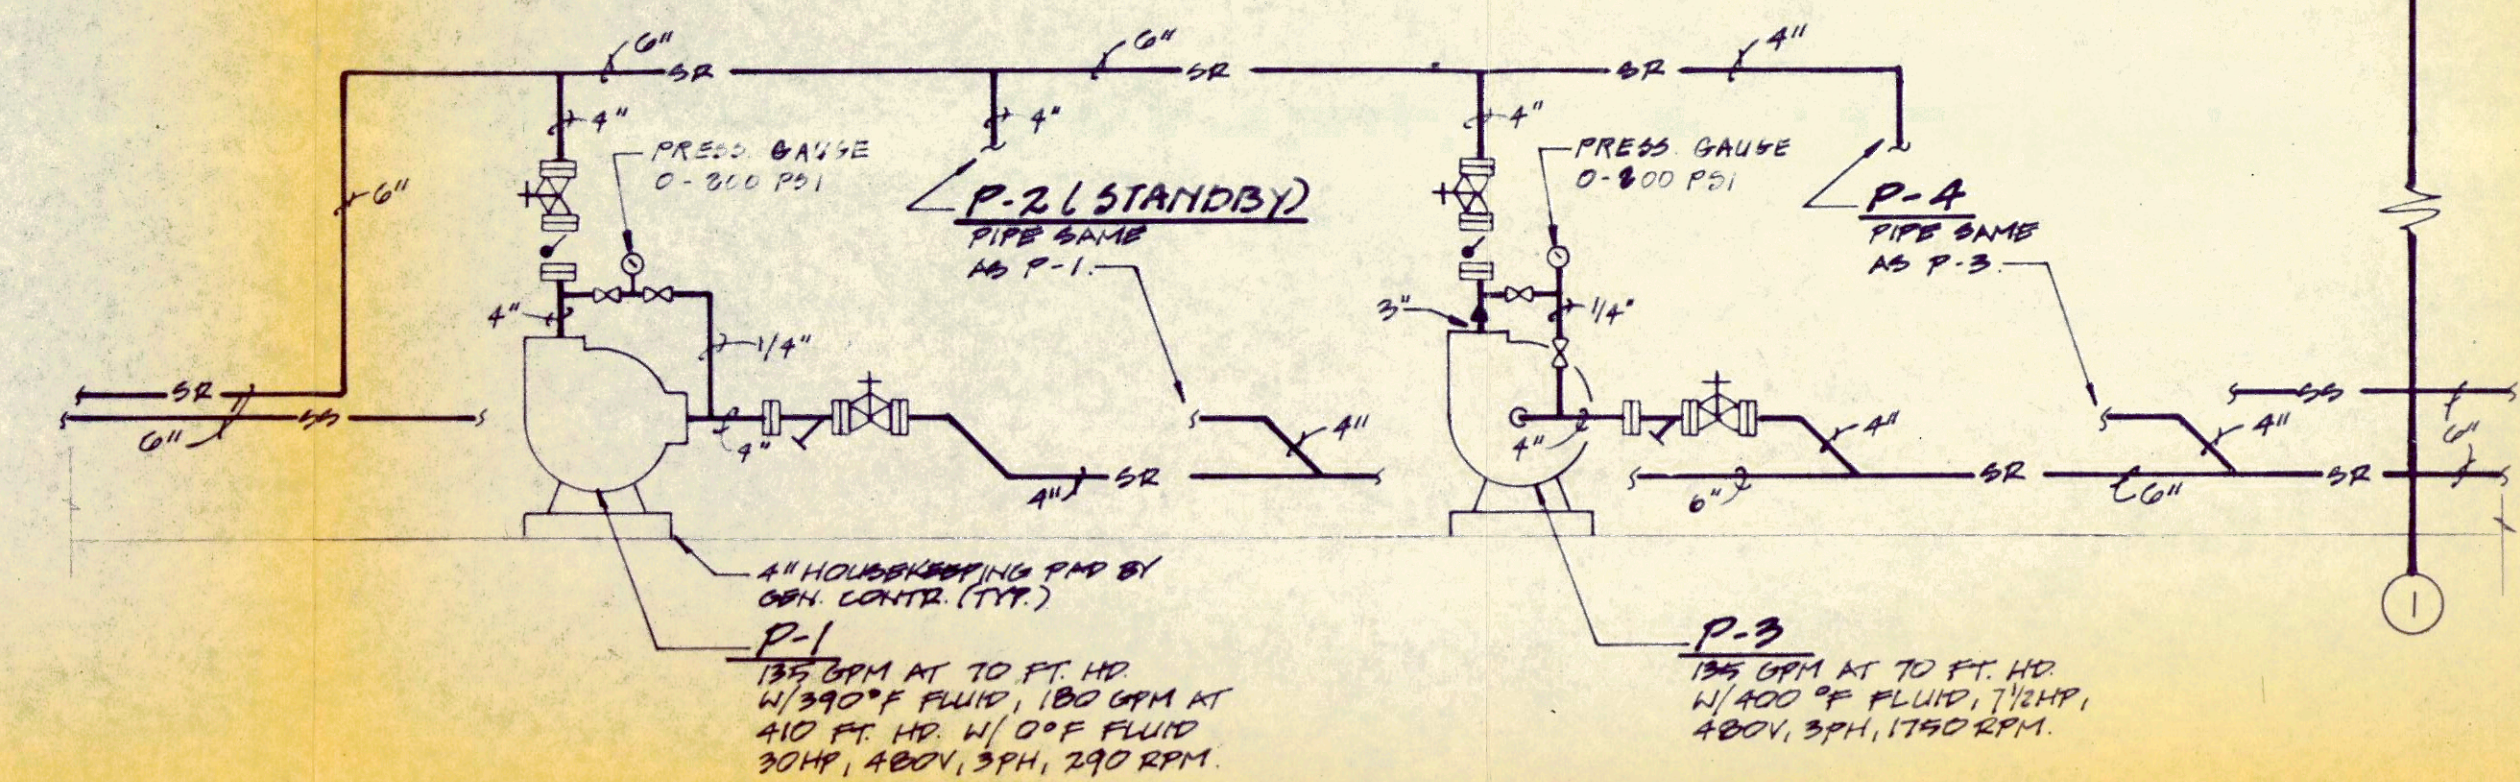 6" 6" 4"
SR SR SR
4" 4" 4"
PRESS. GAUGE
PRESS. GAUGE
6"
P-2 (STANDBY)
PIPE SAME
AS P-1.
P-4
PIPE SAME
AS P-3.
4" 1/4" 3" 1/4"
SR
SS
6"
4" 4" 4" 4" 4"
SS
6"
4" SR 6" SR 6" SR
4" HOUSEKEEPING PAD BY
GEN. CONTR. (TYP.)
P-1
135 GPM AT 70 FT. HD.
W/390°F FLUID, 180 GPM AT
410 FT. HD. W/ 0°F FLUID
30HP, 480V, 3PH, 290 RPM.
P-3
135 GPM AT 70 FT. HD.
W/400 °F FLUID, 7 1/2 HP,
480V, 3PH, 1750 RPM.
1